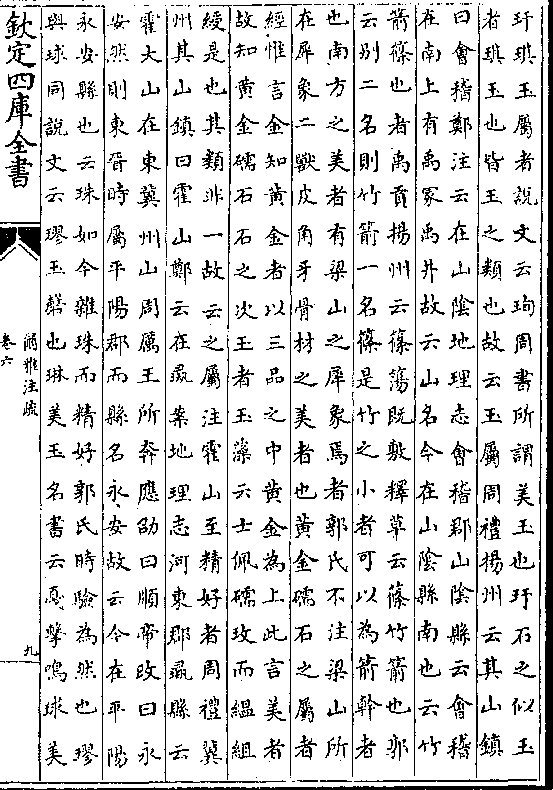 玗琪玉屬者說文云珣周書所謂美玉也玗石之似玉
者琪玉也皆玉之類也故云玉屬周禮揚州云其山鎮
曰會稽鄭注云在山陰地理志會稽郡山陰縣云會稽
在南上有禹冢禹井故云山名今在山陰縣南也云竹
箭篠也者禹貢揚州云篠簜既敷釋草云篠竹箭也郭
云別二名則竹箭一名篠是竹之小者可以為箭幹者
也南方之美者有梁山之犀象焉者郭氏不注梁山所
在犀象二獸皮角牙骨材之美者也黃金礝石之屬者
經惟言金知黃金者以三品之中黃金為上此言美者
故知黃金礝石石之次玉者玉藻云士佩礝玫而緼組
綬是也其類非一故云之屬注霍山至精好者周禮冀
州其山鎮曰霍山鄭云在彘案地理志河東郡彘縣云
霍大山在東冀州山周厲王所奔應劭曰順帝改曰永
安然則東晉時屬平陽郡而縣名永安故云今在平陽
永安縣也云珠如今雜珠而精好郭氏時驗為然也璆
與球同說文云璆玉磬也琳美玉名書云戛擊鳴球美
欽定四庫全書
爾雅注疏
卷六
九